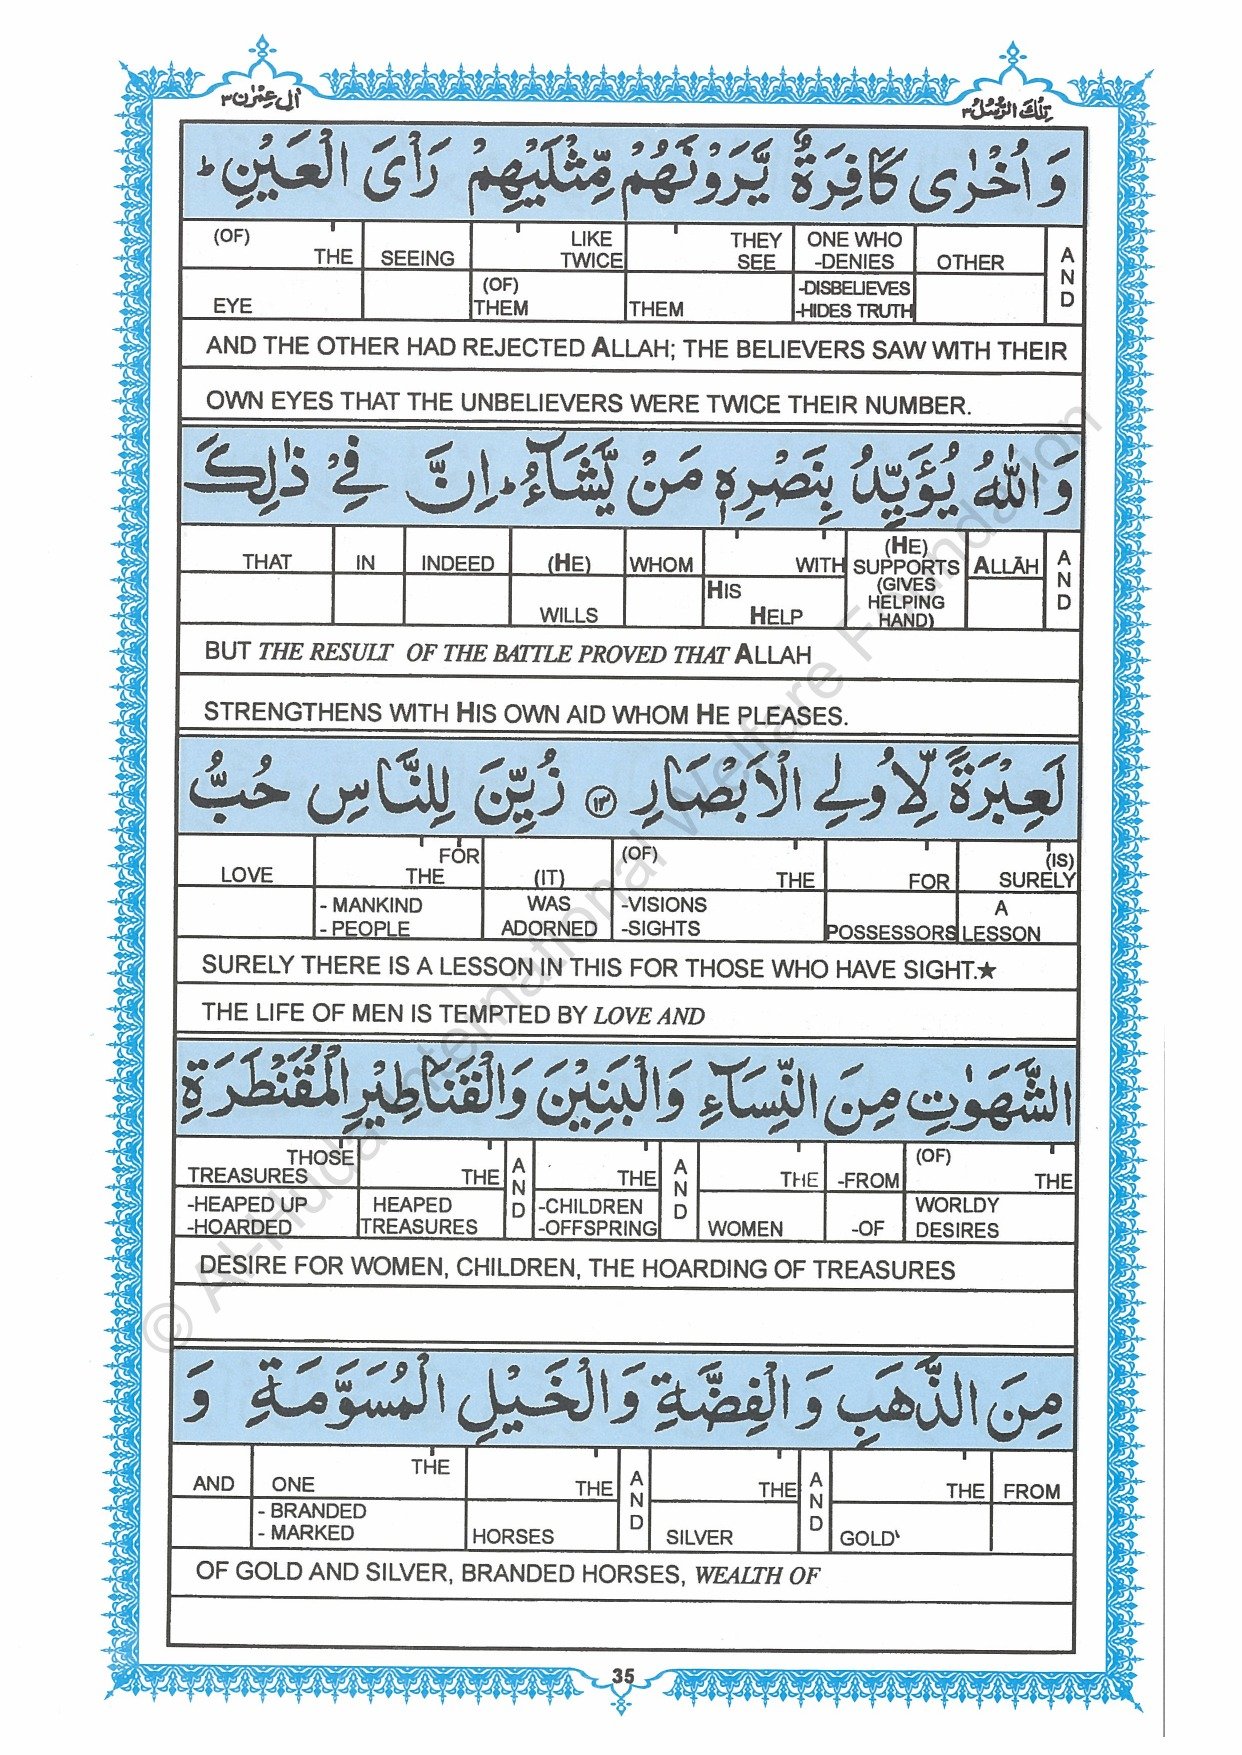 اٰل عِمْرٰن ٣
تِلْكَ الرُّسُلُ ٣
وَ اُخْرٰى كَافِرَةٌ يَّرَوْنَهُمْ مِّثْلَيْهِمْ رَاْىَ الْعَيْنِ ؕ
(OF) THE EYE SEEING LIKE TWICE (OF) THEM THEY SEE THEM ONE WHO -DENIES -DISBELIEVES -HIDES TRUTH OTHER AND
AND THE OTHER HAD REJECTED ALLAH; THE BELIEVERS SAW WITH THEIR
OWN EYES THAT THE UNBELIEVERS WERE TWICE THEIR NUMBER.
وَ اللّٰهُ يُؤَيِّدُ بِنَصْرِهٖ مَنْ يَّشَآءُ ؕ اِنَّ فِيْ ذٰلِكَ
THAT IN INDEED (HE) WILLS WHOM WITH HIS HELP (HE) SUPPORTS (GIVES HELPING HAND) ALLĀH AND
BUT THE RESULT OF THE BATTLE PROVED THAT ALLAH
STRENGTHENS WITH HIS OWN AID WHOM HE PLEASES.
لَعِبْرَةً لِّاُولِي الْاَبْصَارِ ﴿۱۳﴾ زُيِّنَ لِلنَّاسِ حُبُّ
LOVE FOR THE - MANKIND - PEOPLE (IT) WAS ADORNED (OF) THE -VISIONS -SIGHTS FOR POSSESSORS (IS) SURELY A LESSON
SURELY THERE IS A LESSON IN THIS FOR THOSE WHO HAVE SIGHT.★
THE LIFE OF MEN IS TEMPTED BY LOVE AND
الشَّهَوٰتِ مِنَ النِّسَآءِ وَالْبَنِيْنَ وَالْقَنَاطِيْرِ الْمُقَنْطَرَةِ
THOSE TREASURES -HEAPED UP -HOARDED THE HEAPED TREASURES AND THE -CHILDREN -OFFSPRING AND THE WOMEN -FROM -OF (OF) THE WORLDY DESIRES
DESIRE FOR WOMEN, CHILDREN, THE HOARDING OF TREASURES
مِنَ الذَّهَبِ وَالْفِضَّةِ وَالْخَيْلِ الْمُسَوَّمَةِ وَ
AND THE ONE - BRANDED - MARKED THE HORSES AND THE SILVER AND THE GOLD FROM
OF GOLD AND SILVER, BRANDED HORSES, WEALTH OF
35
© Al-Huda International Welfare Foundation